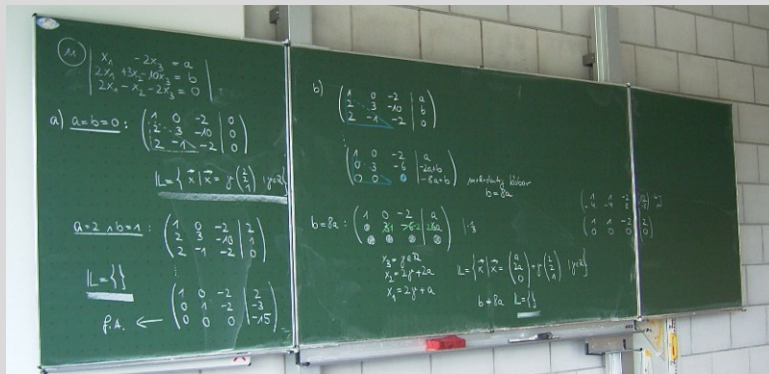 11
x₁ -2x₃ = a
2x₁ +3x₂ -10x₃ = b
2x₁ -x₂ -2x₃ = 0
a) a=b=0: ( 1 0 -2 | 0
2 3 -10 | 0
2 -1 -2 | 0 )
𝕃={ x⃗ | x⃗ = y(2 2 1) | y∈ℝ}
a=2 ∧ b=1: ( 1 0 -2 | 2
2 3 -10 | 1
2 -1 -2 | 0 )
𝕃={ }
⋮
( 1 0 -2 | 2
0 1 -2 | -3
0 0 0 | -15 )
f.A. ←
b) ( 1 0 -2 | a
2 3 -10 | b
2 -1 -2 | 0 )
⋮
( 1 0 -2 | a
0 3 -6 | -2a+b
0 0 0 | -8a+b )
lösbar
b=8a
b=8a: ( 1 0 -2 | a
0 | 2a
0 0 0 | 0 ) |:3
x₃ = y∈ℝ
x₂ = 2y+2a
x₁ = 2y+a
𝕃={ x⃗ | x⃗ = (a 2a 0) + y(2 2 1) | y∈ℝ}
b≠8a 𝕃={ }
( 1 1 -2 | 2
0 0 0 | 0 )